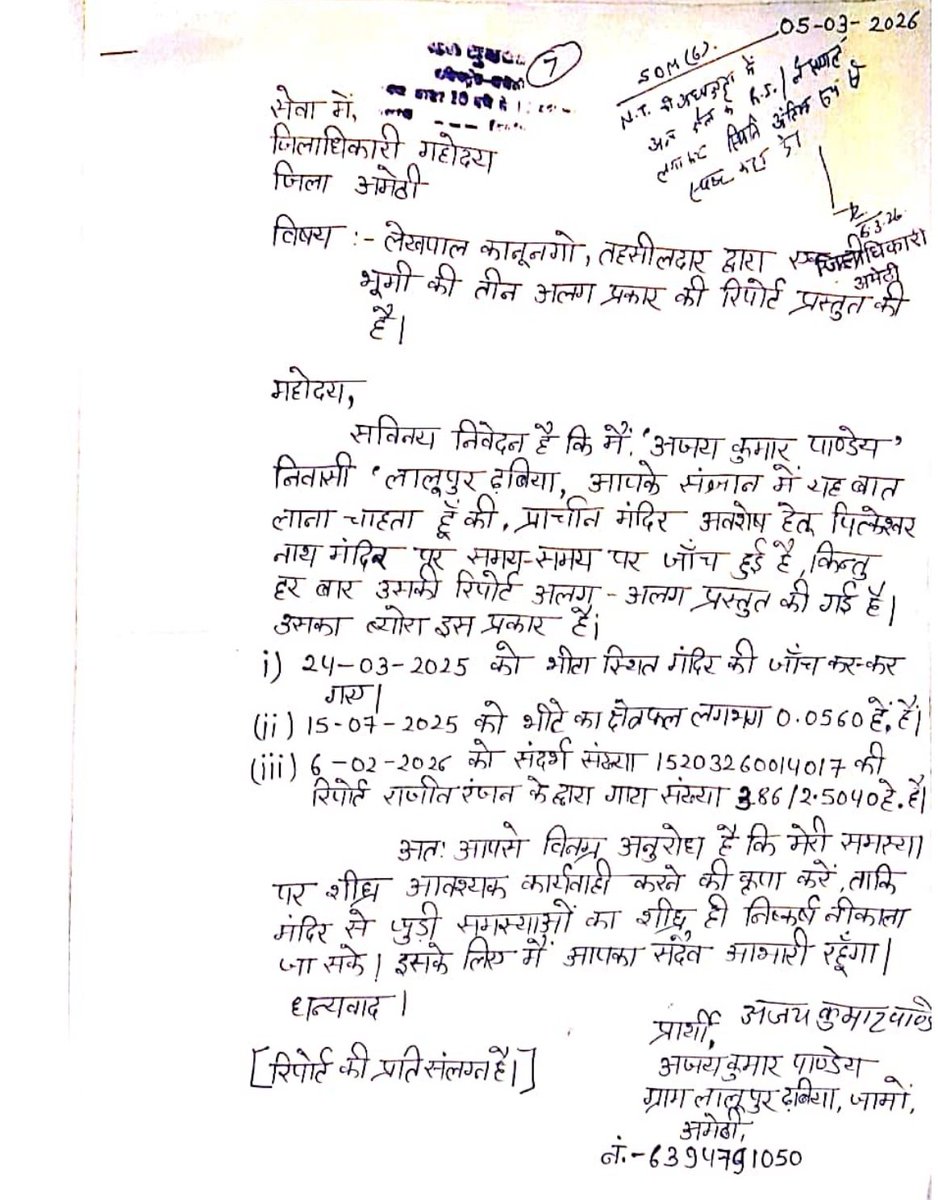 05-03-2026
7
SDM(G).
N.T. की अध्यक्षता में
अन्य क्षेत्र के R.I / लेखपाल
लगाकर स्थिति अंतिम रूप से
स्पष्ट करा दें
6.3.26
जिलाधिकारी
अमेठी
सेवा में,
जिलाधिकारी महोदय
जिला अमेठी
विषय :- लेखपाल कानूनगो, तहसीलदार द्वारा एक ही
भूमी की तीन अलग प्रकार की रिपोर्ट प्रस्तुत की
है।
महोदय,
सविनय निवेदन है कि मैं. 'अजय कुमार पाण्डेय'
निवासी 'लालूपुर ढ़बिया, आपके संज्ञान में यह बात
लाना चाहता हूँ की, प्राचीन मंदिर अवशेष हेतू पित्केश्वर
नाथ मंदिर पूर समय-समय पर जाँच हुई है, किन्तु
हर बार उसकी रिपोर्ट अलग - अलग प्रस्तुत की गई है।
उसका ब्योरा इस प्रकार है।
i) 24-03-2025 को भीटा स्थित मंदिर की जाँच कर-कर
गए।
(ii) 15-07-2025 को भीटे का क्षेत्रफल लगभग 0.0560 हे. है।
(iii) 6-02-2026 को संदर्भ संख्या 15203260014017 की
रिपोर्ट राजीत रंजन के द्वारा गाटा संख्या 386/2.5040 हे. है।
अतः आपसे विनम्र अनुरोध है कि मेरी समस्या
पर शीघ्र आवश्यक कार्यवाही करने की कृपा करें, ताकि
मंदिर से जुड़ी समस्याओं का शीघ्र ही निष्कर्ष नीकाला
जा सके। इसके लिए मैं आपका सदैव आभारी रहूँगा।
धान्यवाद।
अजय कुमार पाण्डे
प्रार्थी,
अजय कुमार पाण्डेय
[रिपोर्ट की प्रति संलग्न है।]
ग्राम लालूपुर ढ़बिया, जामों,
अमेठी,
नं.-6394791050